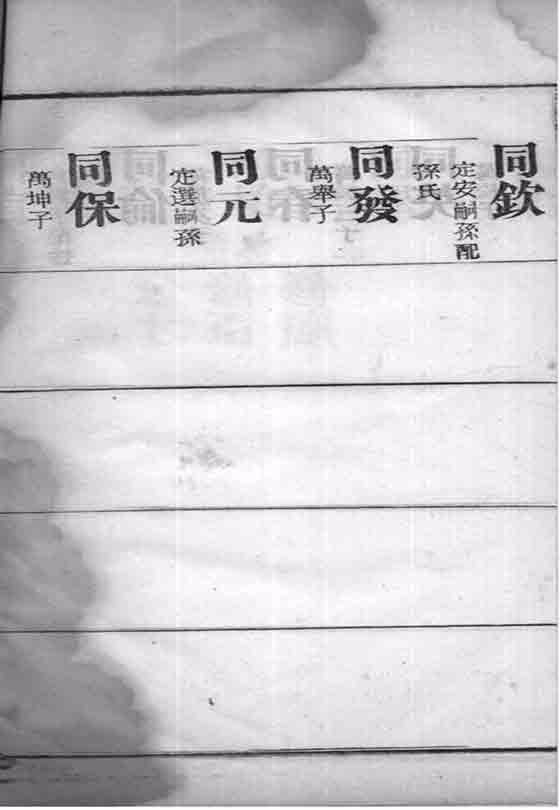 同欽
定安嗣孫配
孫氏
同發
萬舉子
同元
定選嗣孫
同保
萬坤子